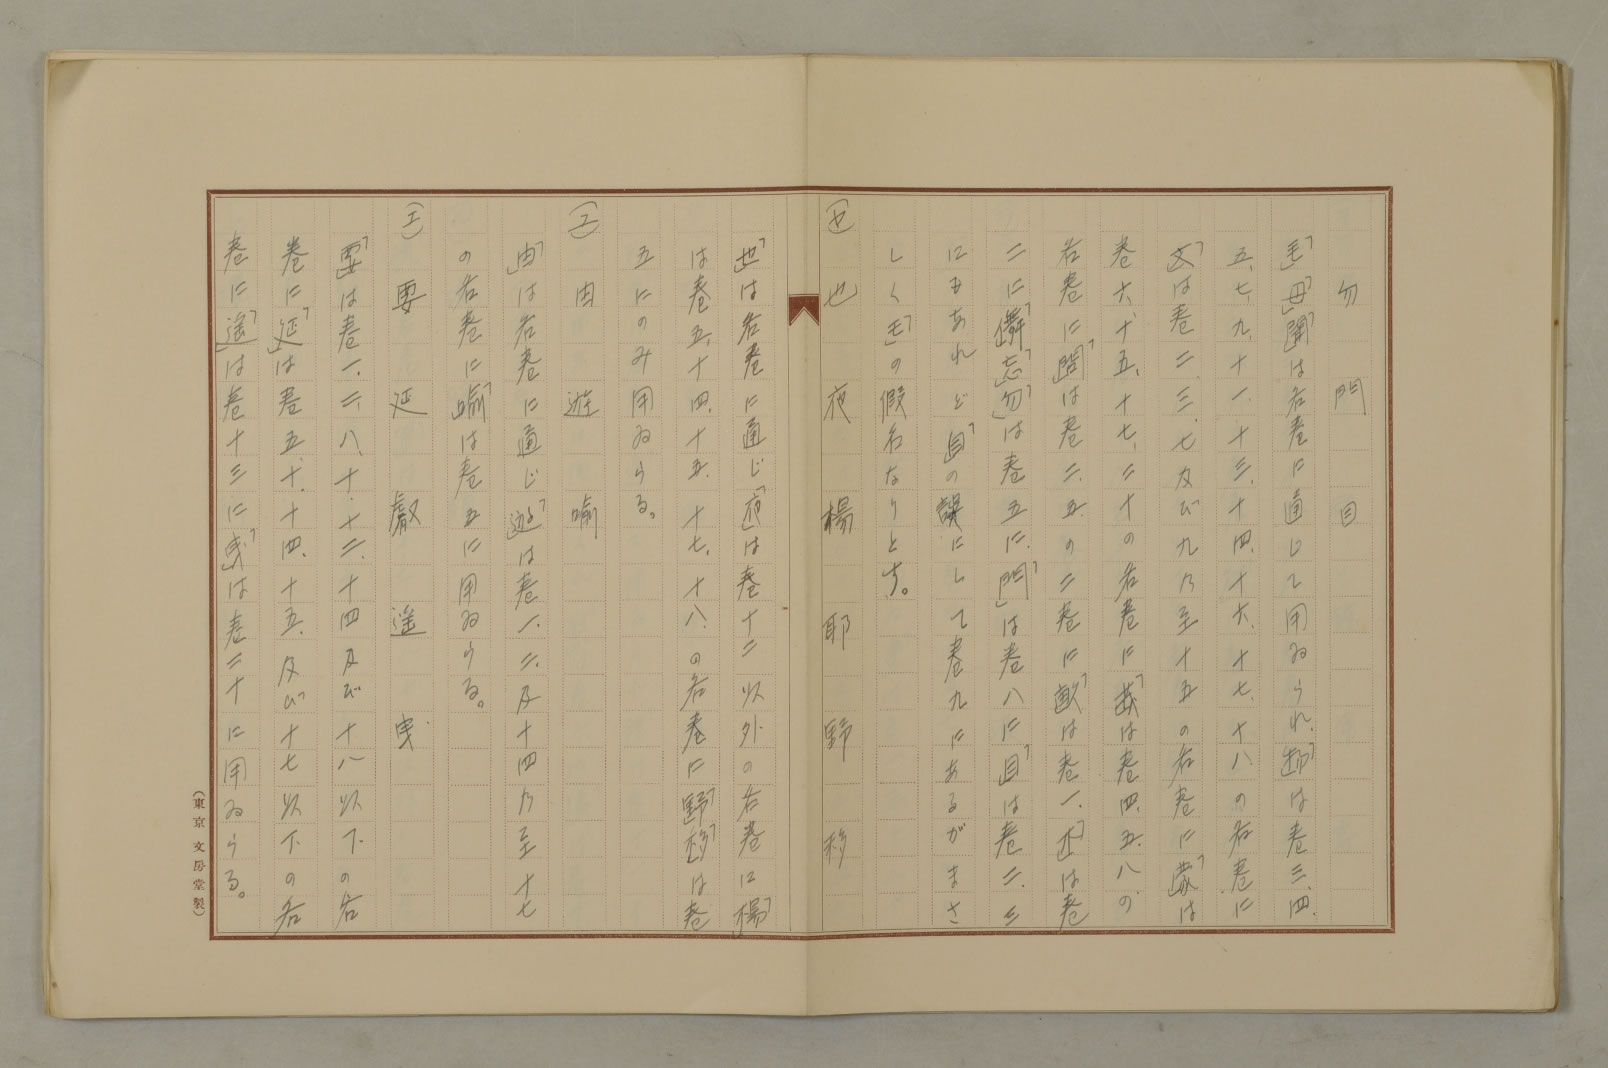 勿　門　目
「毛」「母」「聞」は各巻に通じて用ゐられ、「茆」は巻三、四、
五、七、九、十一、十三、十四、十六、十七、十八の各巻に
「文」は巻二、三、七及び九乃至十五の各巻に「蒙」は
巻六、十五、十七、二十の各巻に「茂」は巻四、五、八の
各巻に「問」は巻二、五の二巻に「畝」は巻一、は巻
二に「忘」「勿」は巻五に、「門」は巻八に「目」は巻二、三
にもあれど「目」の誤にして巻九にあるがまさ
しく「モ」の假名なりとす。
(ヤ)也　夜　楊　耶　野　移
「也」は各巻に通じ「夜」は巻十二以外の各巻に「楊」
は巻五、十四、十五、十七、十八、の各巻に「野」「移」は巻
五にのみ用ゐらる。
(ユ)由　遊　喩
「由」は各巻に通じ「遊」は巻一、二、及十四乃至十七
の各巻に「喩」は巻五に用ゐらる。
(エ)要　延　叡　遥　曳
「要」は巻一、二、八、十、十二、十四及び十八以下の各
巻に「延」は巻五、十、十四、十五、及び十七以下の各
巻に「遥」は巻十三に「曳」は巻二十に用ゐらる。
(東京 文房堂製)